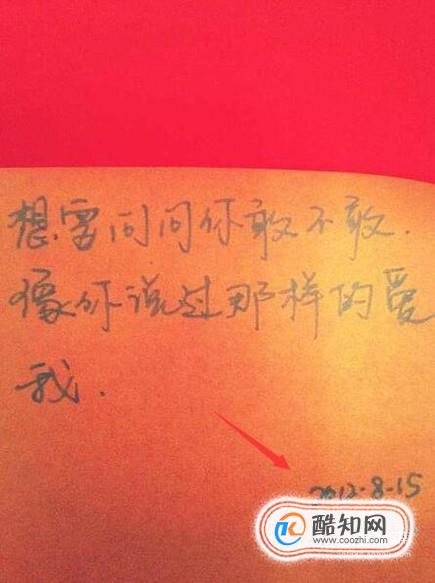 想要问问你敢不敢.
像你说过那样的爱
我.
2012-8-15
酷知网
www.coozhi.com